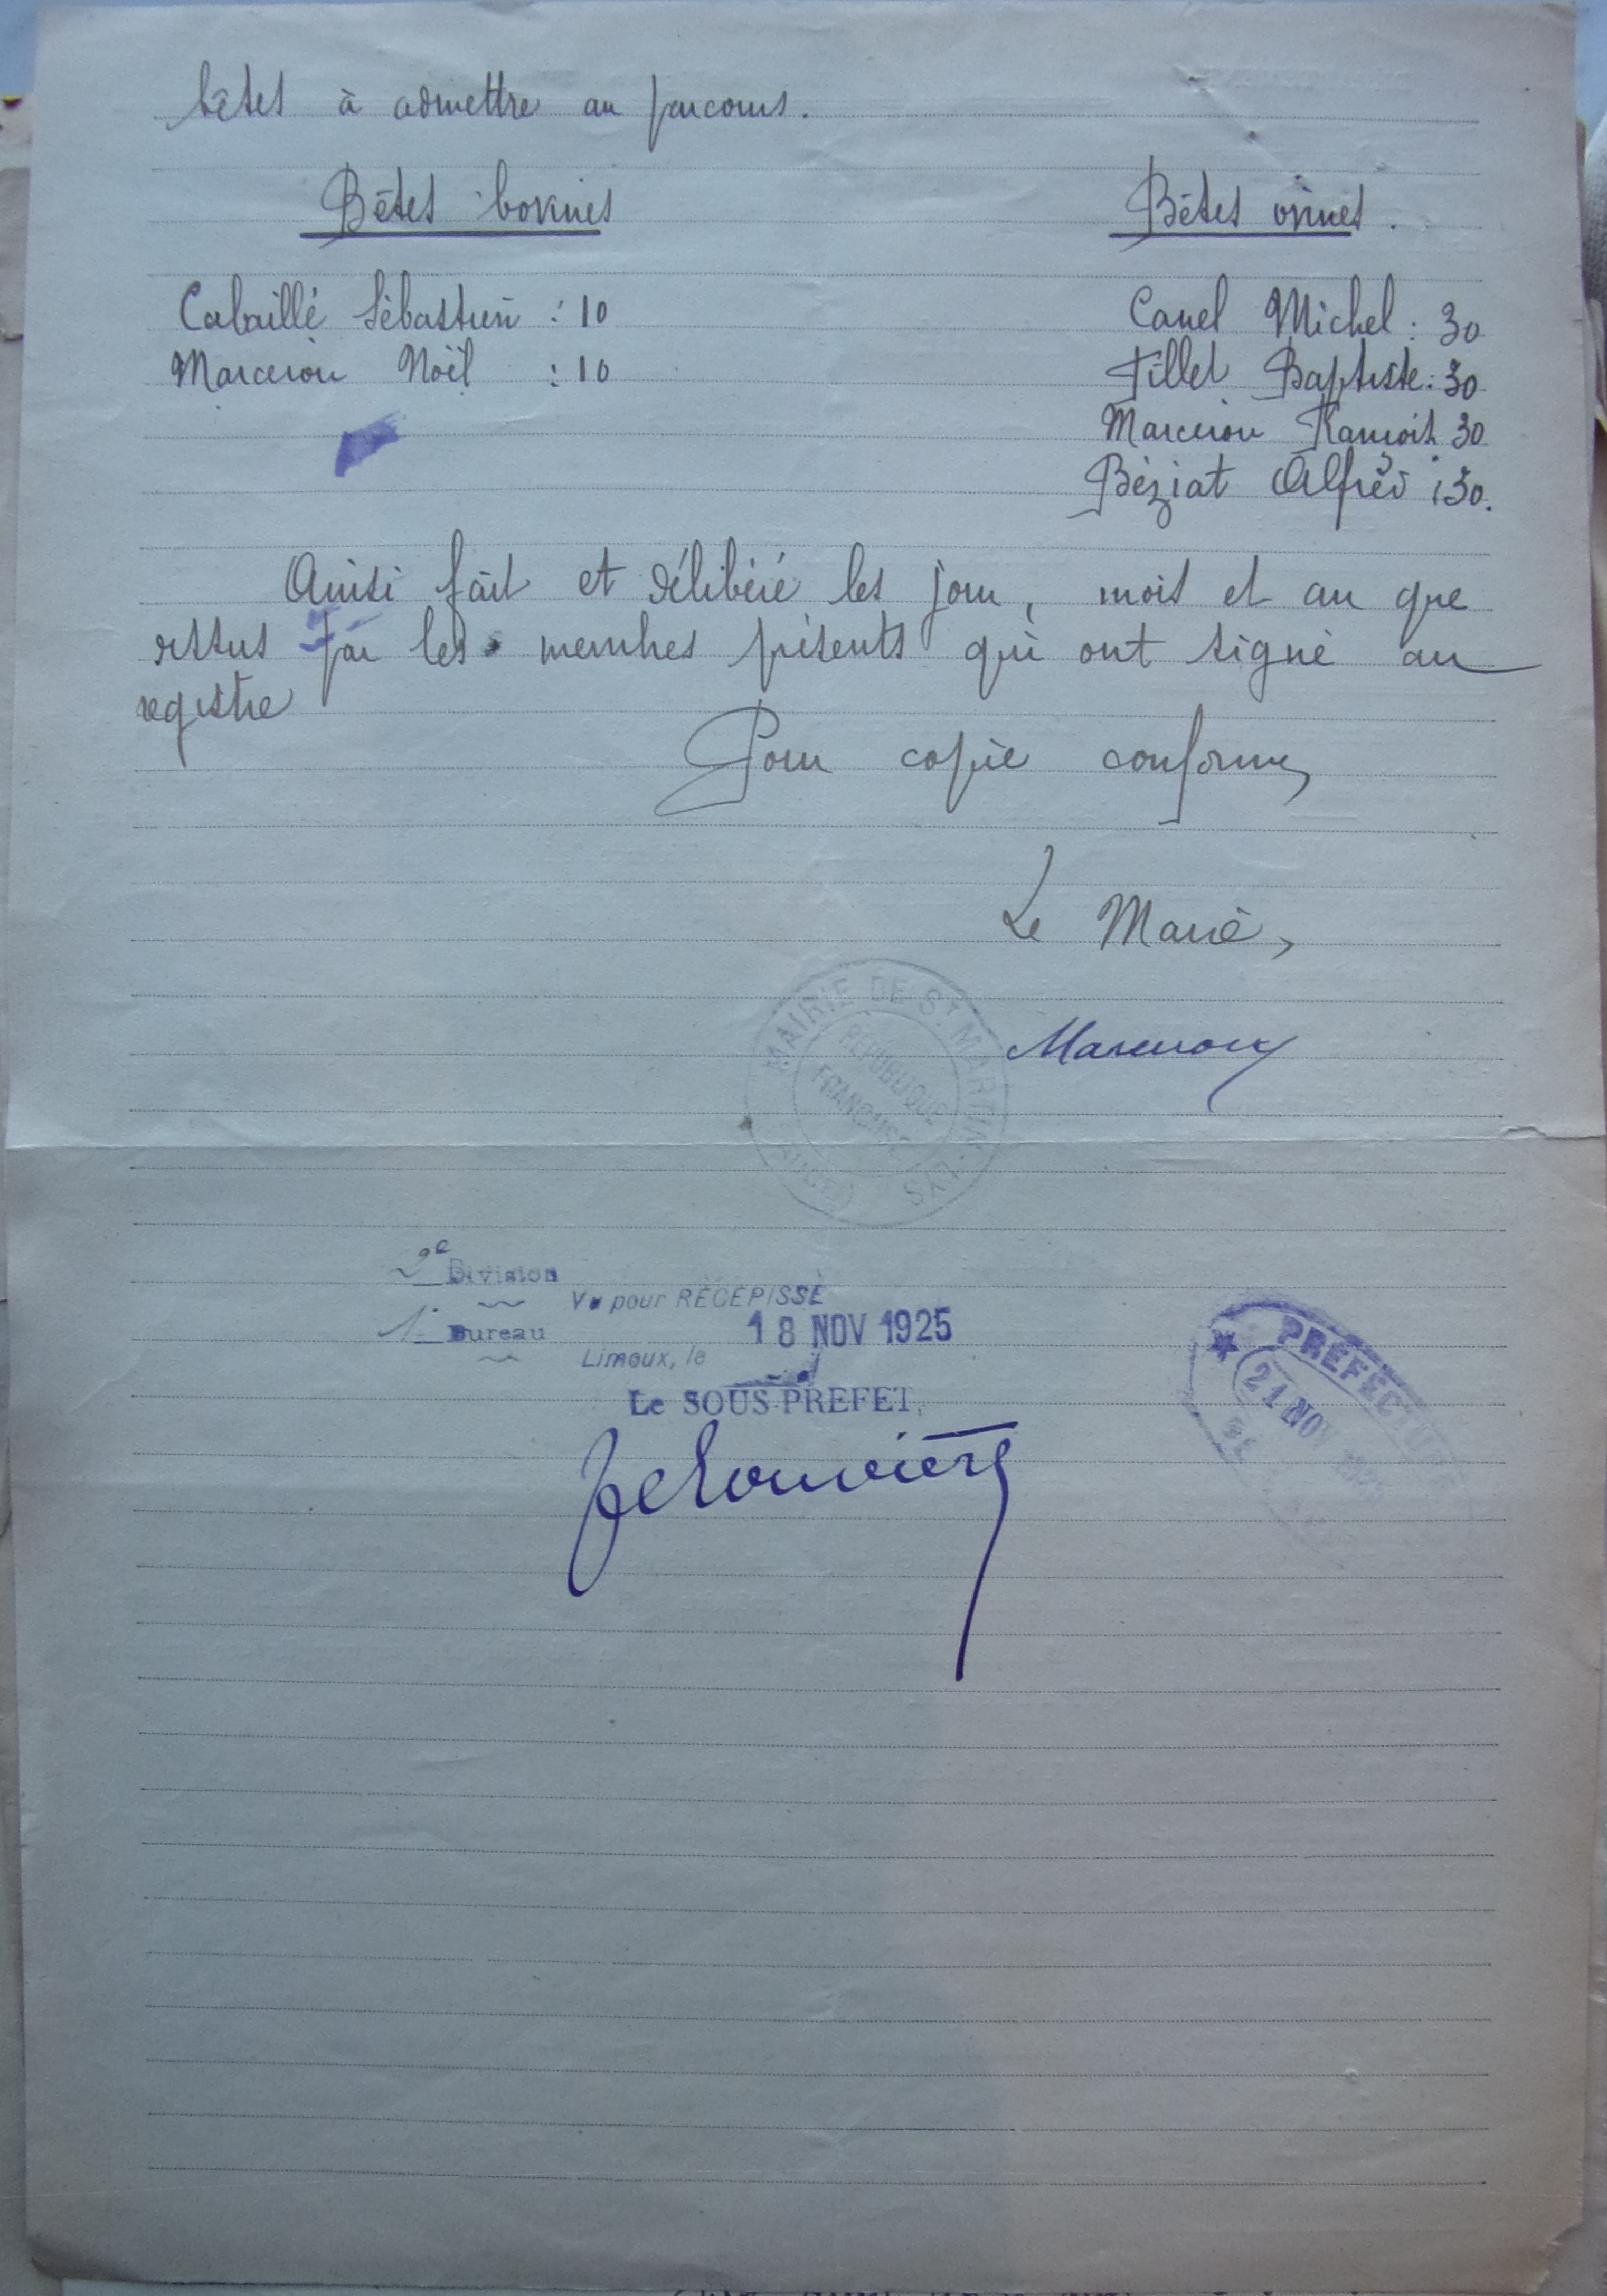 bêtes à admettre au parcours.
Bêtes bovines
Cabaillé Sébastien : 10
Marcerou Noël : 10
Bêtes ovines.
Canel Michel : 30
Tillet Baptiste : 30
Marcerou François 30
Béziat Alfred : 30.
Ainsi fait et délibéré les jour, mois et an que
dessus par les membres présents qui ont signé au
registre
Pour copie conforme,
Le Maire,
Marcerou
MAIRIE DE ST MARTIN-LYS
RÉPUBLIQUE
FRANÇAISE
(AUDE)
2e Division
Vu pour RÉCÉPISSÉ
1. Bureau
18 NOV 1925
Limoux, le
Le SOUS-PREFET,
PRÉFECTURE
21 NOV